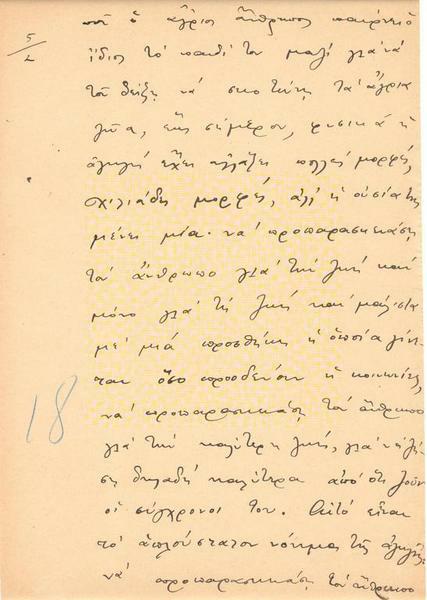 5/2
ποὺ ὁ ἄγριος ἄνθρωπος παίρνει ὁ
ἴδιος τὸ παιδί του μαζὶ γιὰ νὰ
τοῦ δείξῃ νὰ σκοτώνῃ τὰ ἄγρια
ζῶα, ἕως σήμερον, φυσικὰ ἡ
ἀγωγὴ ἔχει ἀλλάξει πολλὲς μορφές,
χιλιάδες μορφές, ἀλλ' ἡ οὐσία της
μένει μία· νὰ προπαρασκευάσῃ
τὸν ἄνθρωπο γιὰ τὴν ζωὴ καὶ
μόνο γιὰ τὴ ζωὴ καὶ
μὲ μιὰ προσθήκη ἡ ὁποία γίνε-
ται ὅσο προοδεύουν ἡ κοινωνίες,
νὰ προπαρασκευάσῃ τὸν ἄνθρωπο
18
γιὰ τὴν καλύτερη ζωή, γιὰ νὰ ζή-
σῃ δηλαδὴ καλύτερα ἀπὸ ὅτι ζοῦν
οἱ σύγχρονοί του. Αὐτὸ εἶναι
τὸ ἁπλούστατον νόημα τῆς ἀγωγῆς
νὰ προπαρασκευάσῃ τὸν ἄνθρωπο